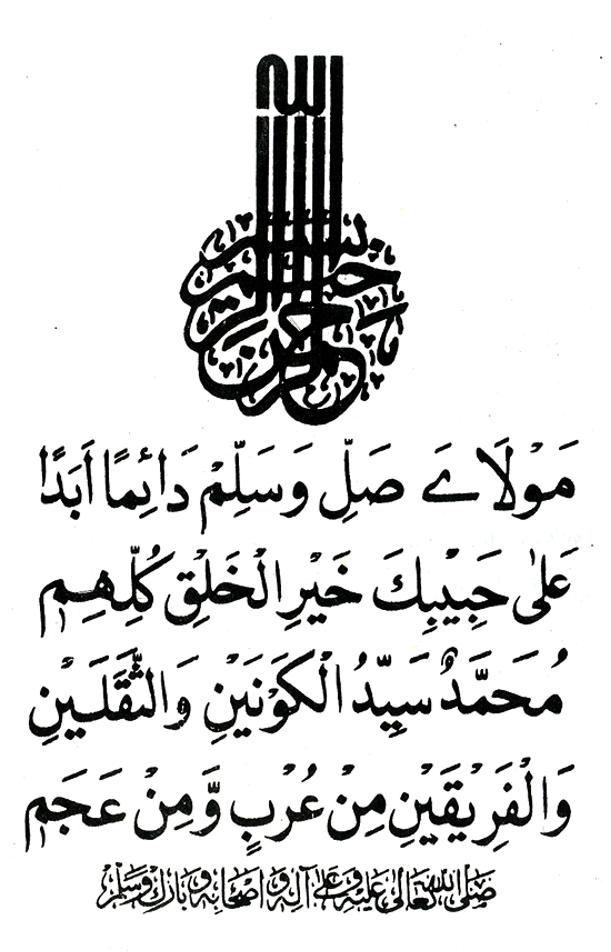 بسم الله الرحمن الرحيم
مَوْلَاىَ صَلِّ وَسَلِّمْ دَائِمًا أَبَدًا
عَلٰى حَبِيْبِكَ خَيْرِ الْخَلْقِ كُلِّهِمِ
مُحَمَّدٌ سَيِّدُ الْكَوْنَيْنِ وَالثَّقَلَيْنِ
وَالْفَرِيْقَيْنِ مِنْ عُرْبٍ وَّمِنْ عَجَمِ
صَلَّى اللهُ تَعَالٰى عَلَيْهِ وَعَلٰى آلِهٖ وَاَصْحَابِهٖ وَبَارَكَ وَسَلَّمَ